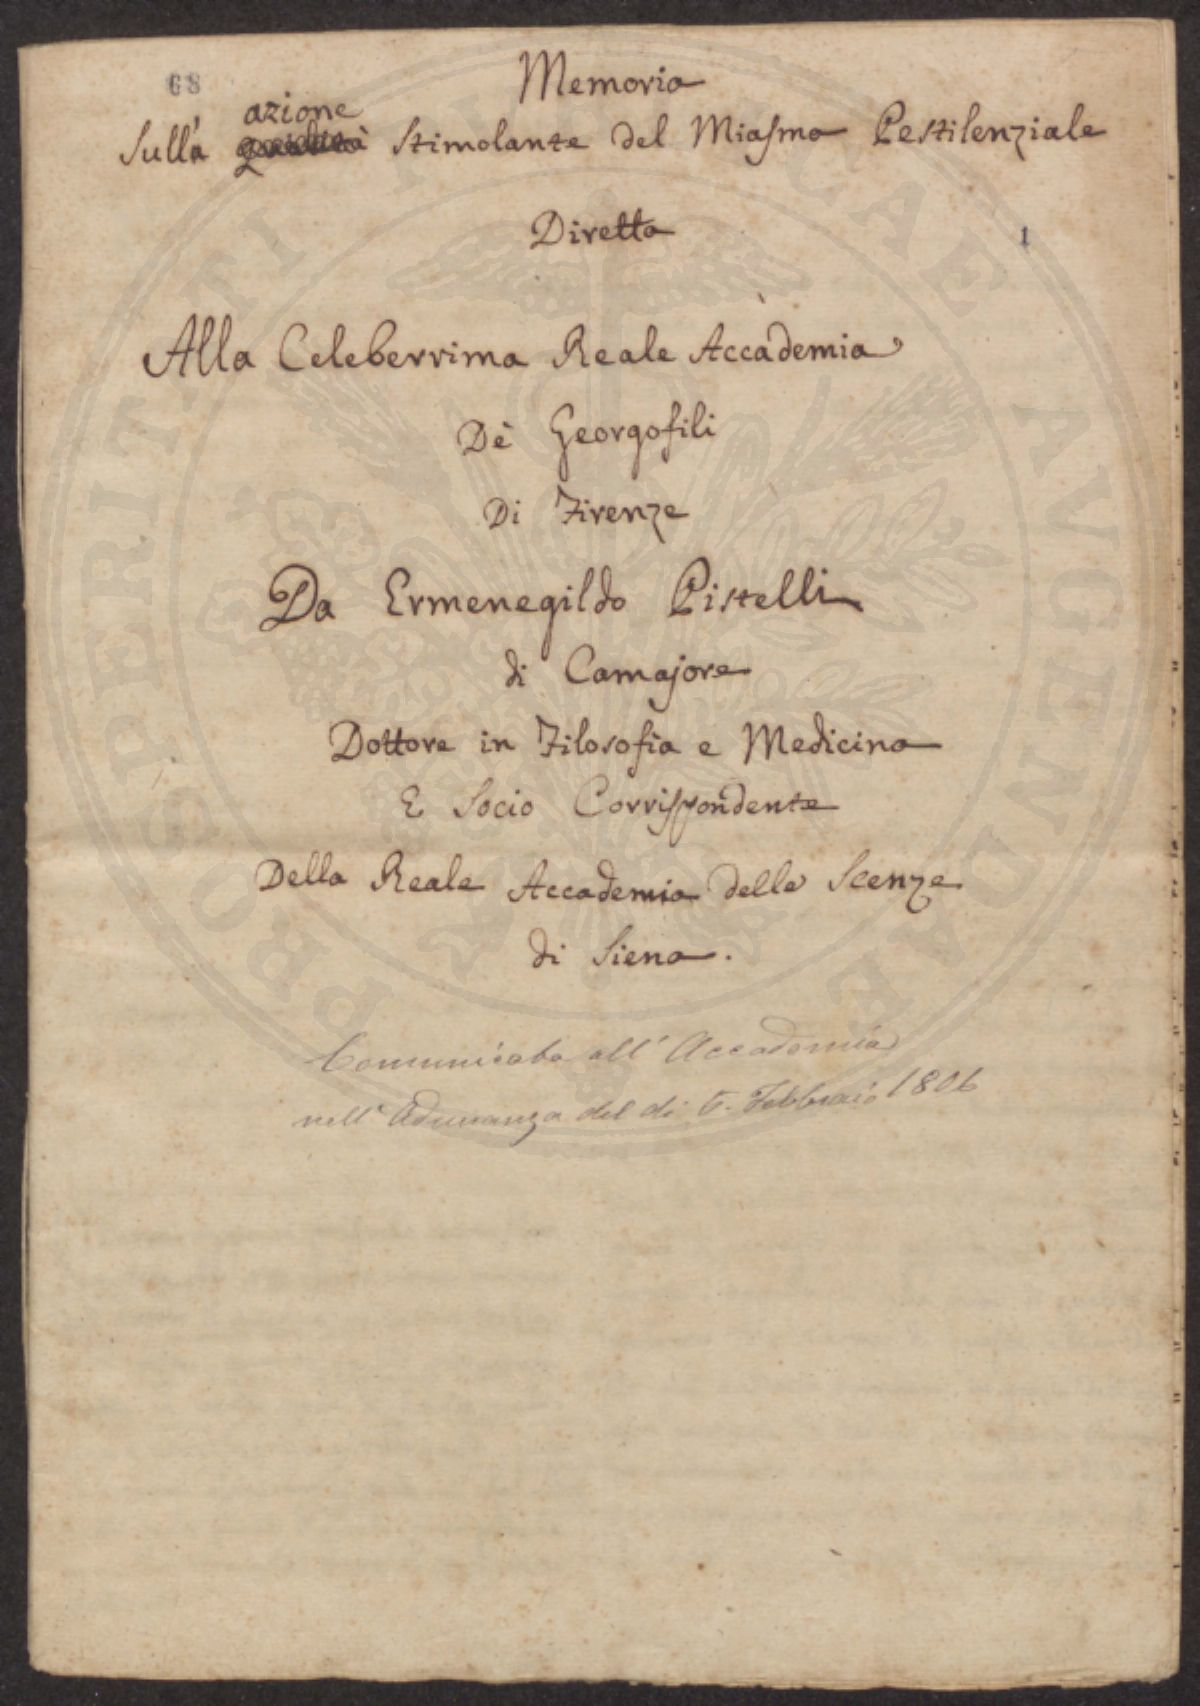 68
Memoria
azione
Sull'a qualità Stimolante del Miasma Pestilenziale
Diretta
1
Alla Celeberrima Reale Accademia
De' Georgofili
Di Firenze
Da Ermenegildo Pistelli
di Camajore
Dottore in Filosofia e Medicina
E Socio Corrispondente
Della Reale Accademia delle Scenze
di Siena.
Comunicata all' Accademia
nell' Adunanza del dì 5. Febbraio 1806
PROSPERITATI PUBLICAE AUGENDAE